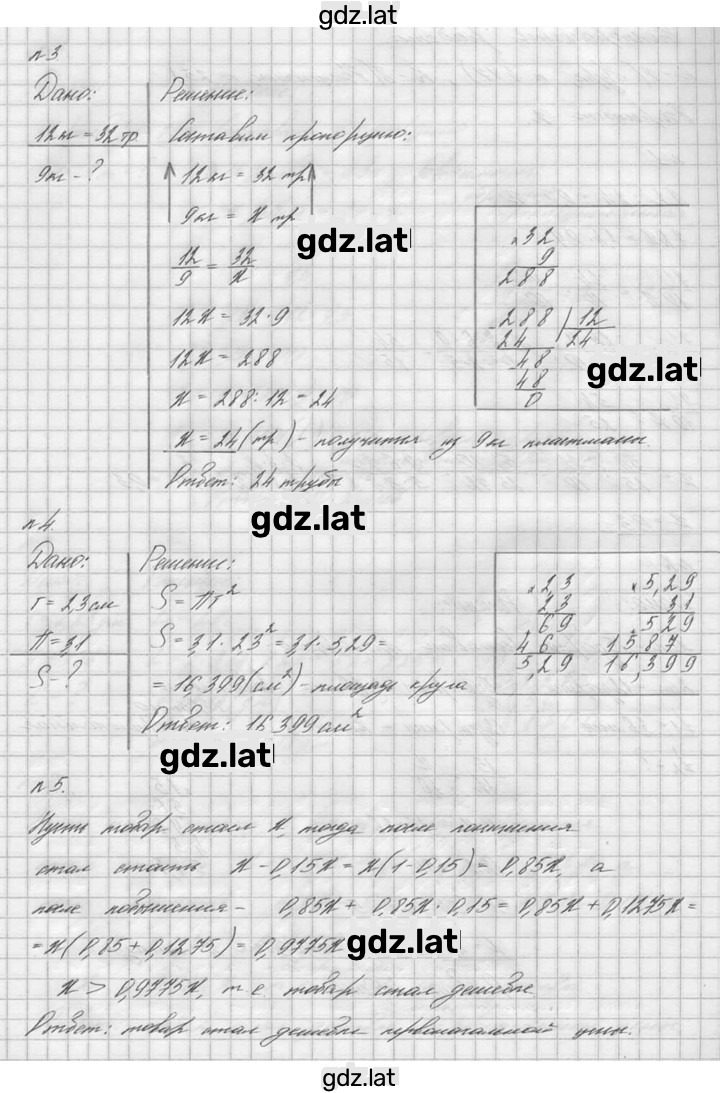 gdz.lat
№3
Дано: Решение:
12 кг = 32 тр. Составим пропорцию:
9 кг - ? 12 кг = 32 тр
9 кг = x тр
12/9 = 32/x
12x = 32·9
12x = 288
x = 288 : 12 = 24
x = 24 (тр) - получится из 9 кг пластмассы.
Ответ: 24 трубы
× 32
9
288
- 288 | 12
24 24
- 48
48
0
gdz.lat
gdz.lat
gdz.lat
№4.
Дано: Решение:
r = 2,3 см S = πr²
π = 3,1 S = 3,1 · 2,3² = 3,1 · 5,29 =
S - ? = 16,399 (см²) - площадь круга
Ответ: 16,399 см²
× 2,3 × 5,29
2,3 3,1
69 529
46 1587
5,29 16,399
gdz.lat
№5.
Пусть товар стоил x, тогда после понижения
стал стоить x - 0,15x = x(1-0,15) = 0,85x, а
после повышения - 0,85x + 0,85x · 0,15 = 0,85x + 0,1275x =
= x(0,85 + 0,1275) = 0,9775x
gdz.lat
x > 0,9775x, т.е. товар стал дешевле.
Ответ: товар стал дешевле первоначальной цены.
gdz.lat